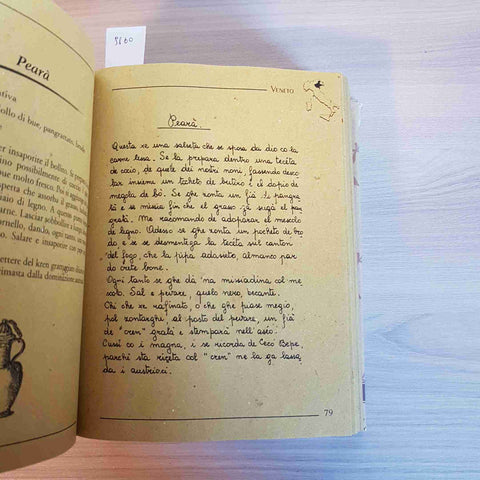 5660
Pearà
ativa
ollo di bue, pangrattato,
er insaporite il bollito.
ino possibilmente di coccio
ue molto fresco. Poi si aggiunge
perta che assorbe il grasso
iaio di legno. A questo punto
arne. Lasciar sobbollire
ornello, dando, ogni tanto,
do. Salare e insaporire con pepe
ettere del kren grattugiato
rimasta dalla dominazione
VENETO
Pearà.
Questa xe una salseta che se sposa da dio co la
carne lessa. Se la prepara dentro una tecéta
de cocio, de quele dei nostri noni, fassendo descolar
insieme un tocheto de butiro e el dopio de
meola de bó. Se ghe zonta un fià de pangratà
e se missia fin che el grasso ga sugà el pan
gratà. Me racomando de adoparar el mescolo
de legno. Adesso se ghe zonta un pocheto de brodo
e se se desmentega la tecéta sul canton
del fogo, che la pipa adasieto, almanco par
do orete bone.
Ogni tanto se ghe dà 'na missiadina col mescolo.
Sal e pévare, quelo nero, becante.
Chi che xe raffinato, o che ghe piase megio,
pol zontarghe, al posto del pévare, un fià
de "cren" gratà e stemparà nell'aséo.
Cussì co i magna, i se ricorda de Ceco Bepe,
parché sta riceta col "cren" ne la ga lassada
i austriaci.
79